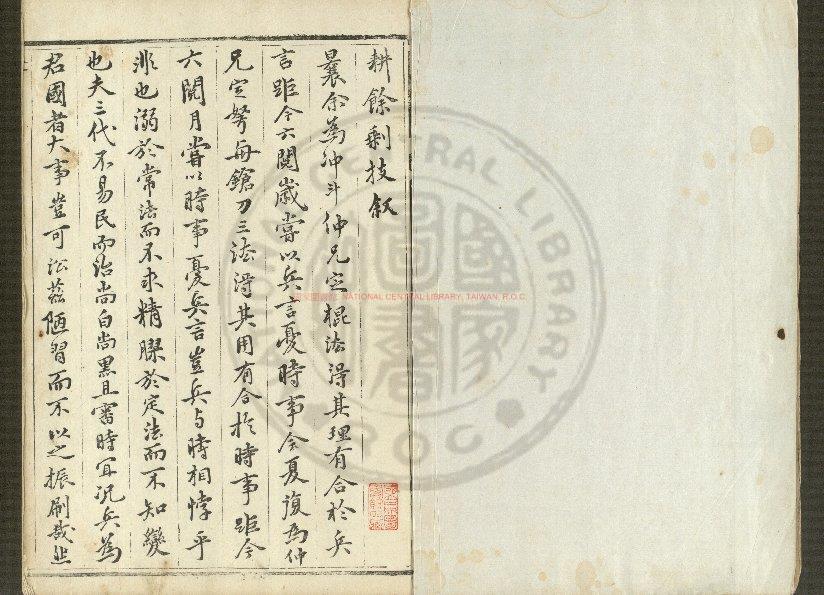 耕餘剩技敘
曩余為沖斗仲兄定棍法得其理有合於兵
言距今六閱歲嘗以兵言憂時事今夏復為仲
兄定弩每鎗刀三法得其用有合於時事距今
六閱月嘗以時事憂兵言豈兵与時相悖乎
非也溺於常法而不求精膠於定法而不知變
也夫三代不易民而治尚白尚黑且審時宜況兵為
君國者大事豈可訟茲陋習而不以之振刷哉然
NATIONAL CENTRAL LIBRARY, TAIWAN, R.O.C.
CENTRAL LIBRARY
R.O.C